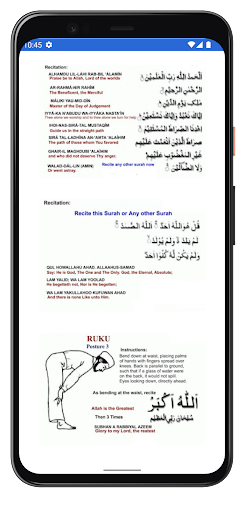 10:45
Recitation:
ALHAMDU LIL-LÂHI RAB-BIL 'ÂLAMÎN
Praise be to Allah, Lord of the worlds
AR-RAHMÂ-NIR RAHÎM
The Beneficent, the Merciful
MÂLIKI YAU-MID-DÎN
Master of the Day of Judgement
IYYÂ-KA N'ABUDU WA IYYÂKA NASTA'ÎN
Thee alone we worship and to thee alone we turn for help
IHDI-NAS-SIRÂTAL MUSTAQÎM
Guide us in the straight path
SIRÂ TAL-LADHÎNA AN'AMTA 'ALAIHIM
The path of those whom You favored
GHAIR-IL MAGHDUUBI 'ALAIHIM
and who did not deserve Thy anger
WALAD-DÂL-LIN (AMIN)
Or went astray.
Recite any other surah now
اَلْحَمْدُ لِلّٰهِ رَبِّ الْعٰلَمِيْنَ
الرَّحْمٰنِ الرَّحِيْمِ
مٰلِكِ يَوْمِ الدِّيْنِ
اِيَّاكَ نَعْبُدُ وَاِيَّاكَ نَسْتَعِيْنُ
اِهْدِنَا الصِّرَاطَ الْمُسْتَقِيْمَ
صِرَاطَ الَّذِيْنَ اَنْعَمْتَ عَلَيْهِمْ
غَيْرِ الْمَغْضُوْبِ عَلَيْهِمْ
وَلَا الضَّآلِّيْنَ
Recitation:
Recite this Surah or Any other Surah
قُلْ هُوَاللّٰهُ اَحَدٌ اَللّٰهُ الصَّمَدُ
لَمْ يَلِدْ وَلَمْ يُوْلَدْ
وَلَمْ يَكُنْ لَّهٗ كُفُوًا اَحَدٌ
QUL HOWALLAHU AHAD. ALLAHUS-SAMAD
Say: He is God, The One and The Only. God, the Eternal, Absolute;
LAM YALID; WA LAM YOOLAD
He begetteth not, Nor is He begotten;
WA LAM YAKULLAHOO KUFUWAN AHAD
And there is none Like unto Him.
RUKU
Posture 3
Instructions:
Bend down at waist, placing palms
of hands with fingers spread over
knees. Back is parallel to ground,
such that if a glass of water were
on the back, it would not spill.
Eyes looking down, directly ahead.
As bending at the waist, recite
Allah is the Greatest
اَللّٰهُ اَكْبَرُ
Then 3 Times
سُبْحَانَ رَبِّيَ الْعَظِيْمِ
SUBHAN A RABBIYAL AZEEM
Glory to my Lord, the